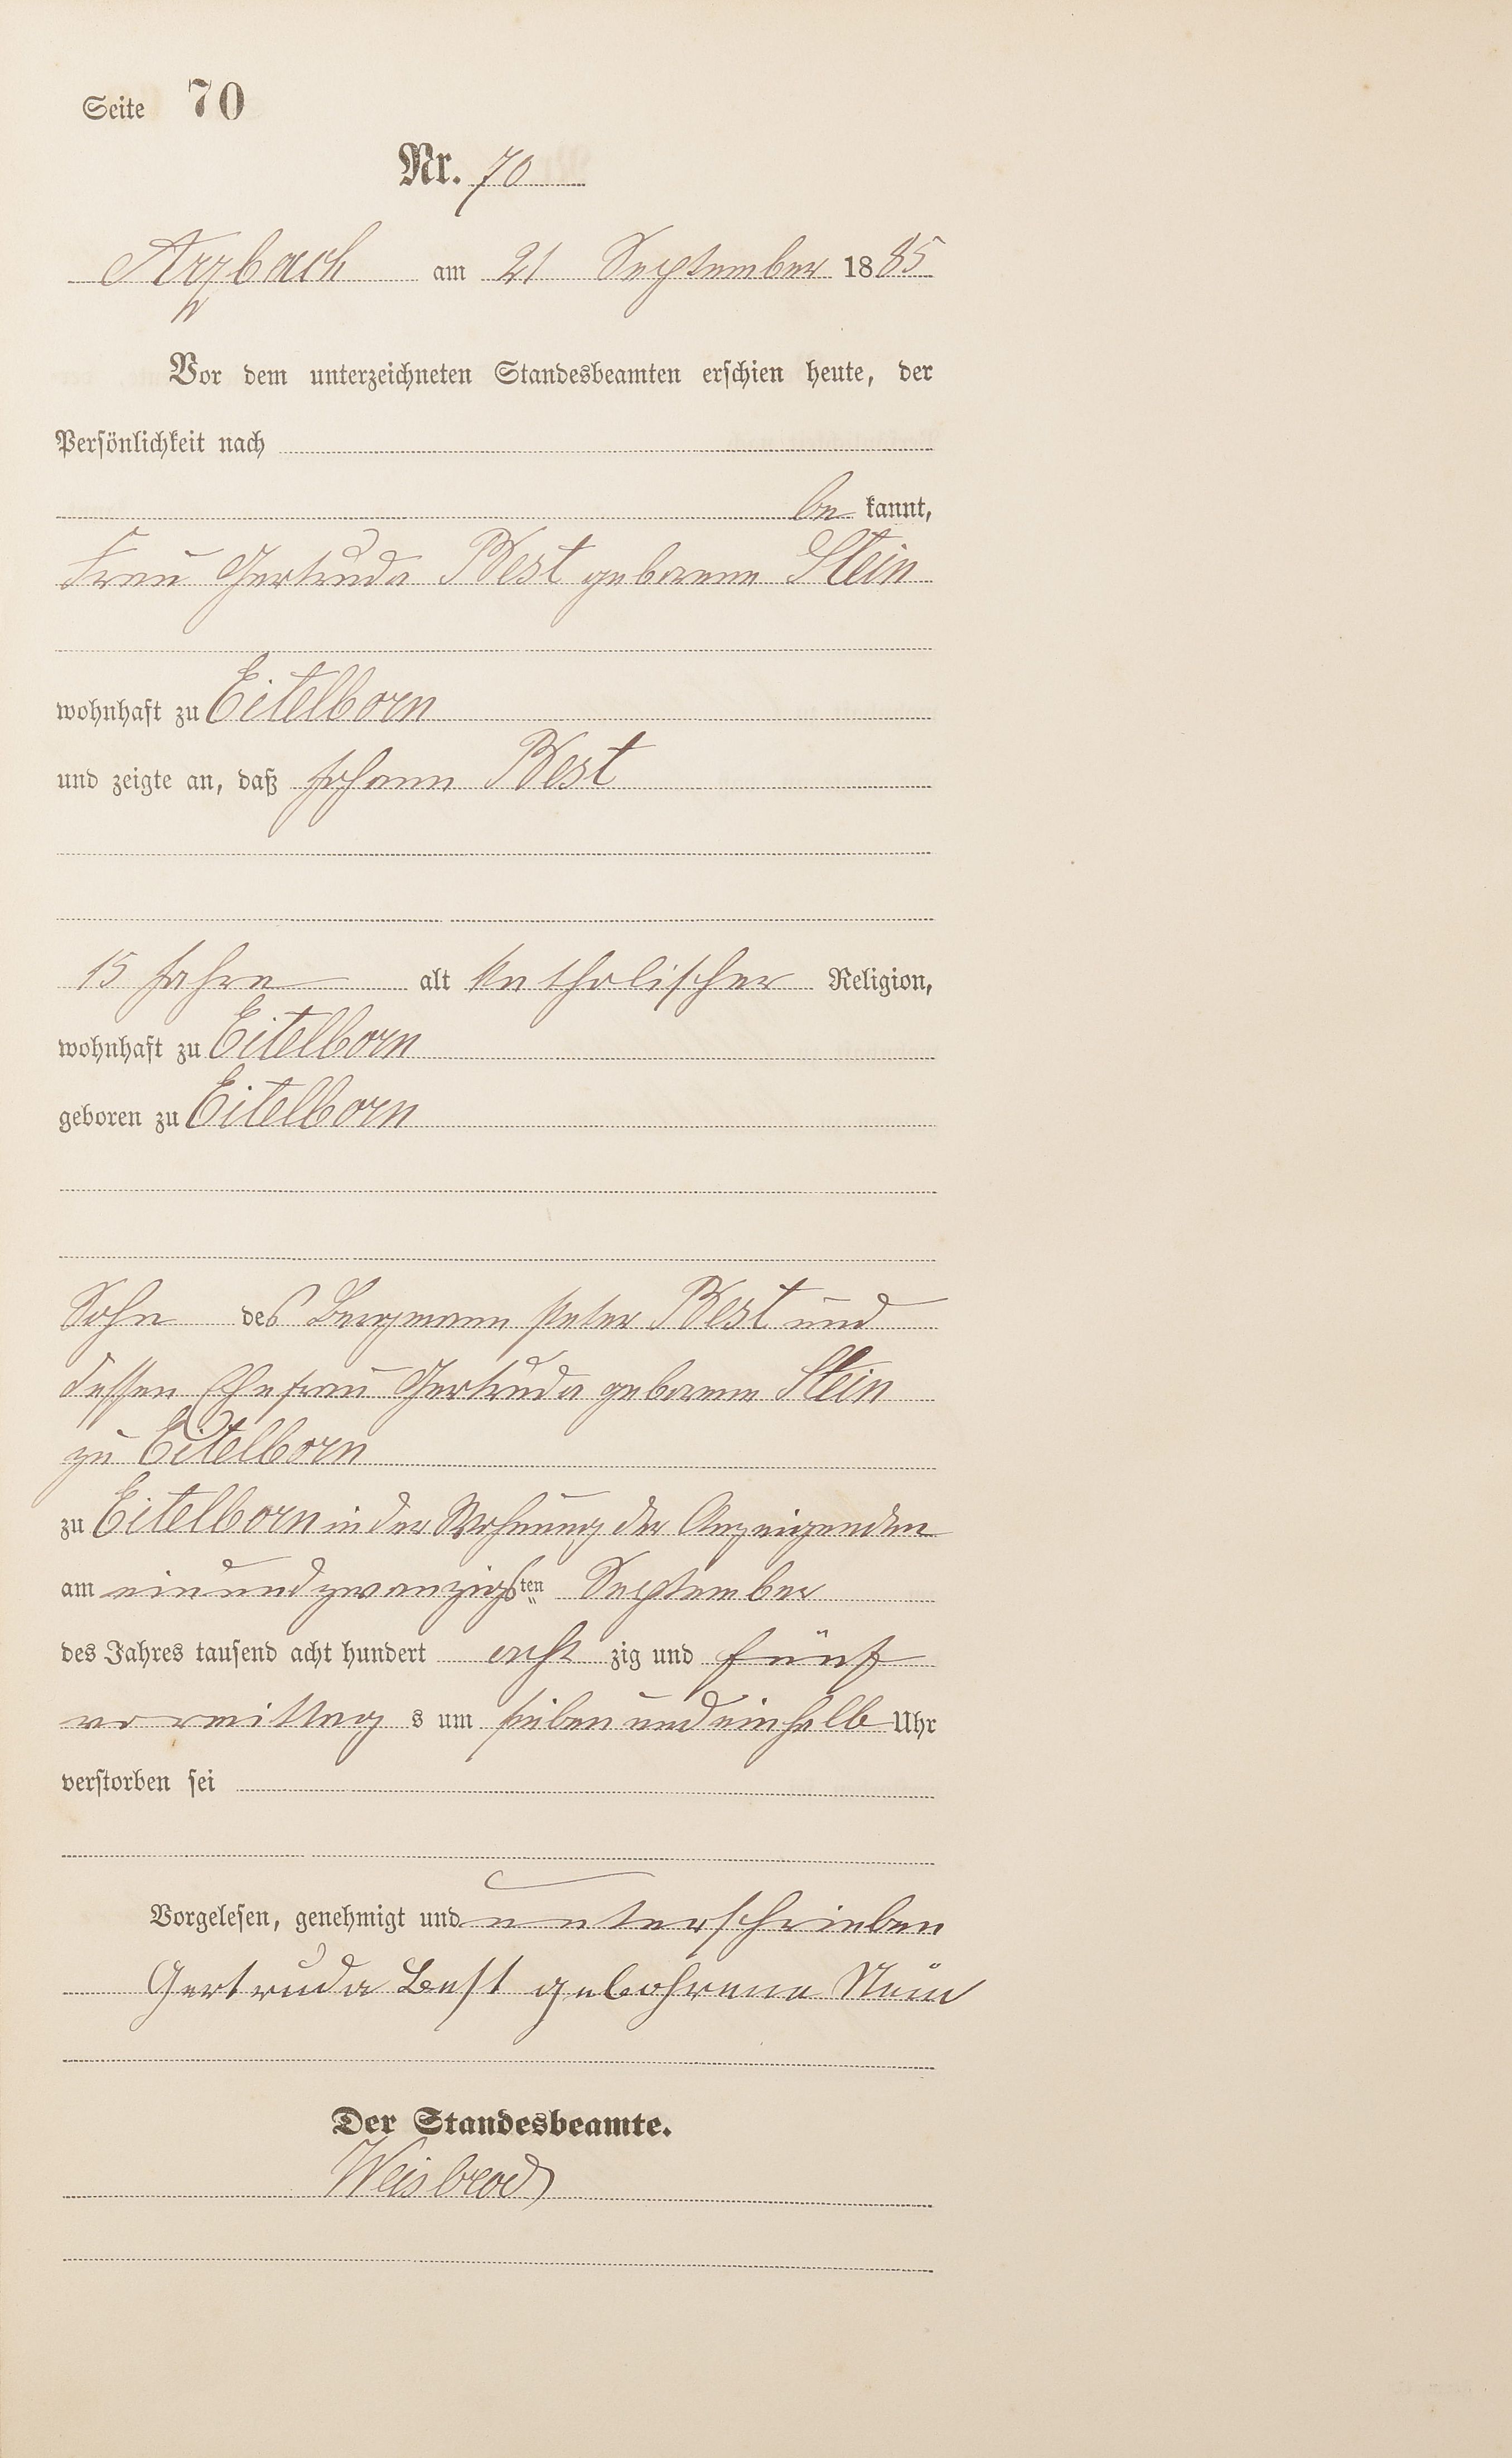 Seite 70
Nr. 70
Arzbach am 21 September 1885
Vor dem unterzeichneten Standesbeamten erschien heute, der
Persönlichkeit nach
be kannt,
Frau Gertruda Best geborene Stein
wohnhaft zu Eitelborn
und zeigte an, daß Johann Best
15 Jahre alt katholischer Religion,
wohnhaft zu Eitelborn
geboren zu Eitelborn
Sohn des Bergmann Peter Best und
dessen Ehefrau Gertruda geborene Stein
zu Eitelborn
zu Eitelborn in der Wohnung der Anzeigenden
am einundzwanzigsten September
des Jahres tausend acht hundert acht zig und fünf
vormittag s um sieben und ein halb Uhr
verstorben sei
Vorgelesen, genehmigt und unterschrieben
Gertruda Best gebohrene Stein
Der Standesbeamte.
Weisbrod